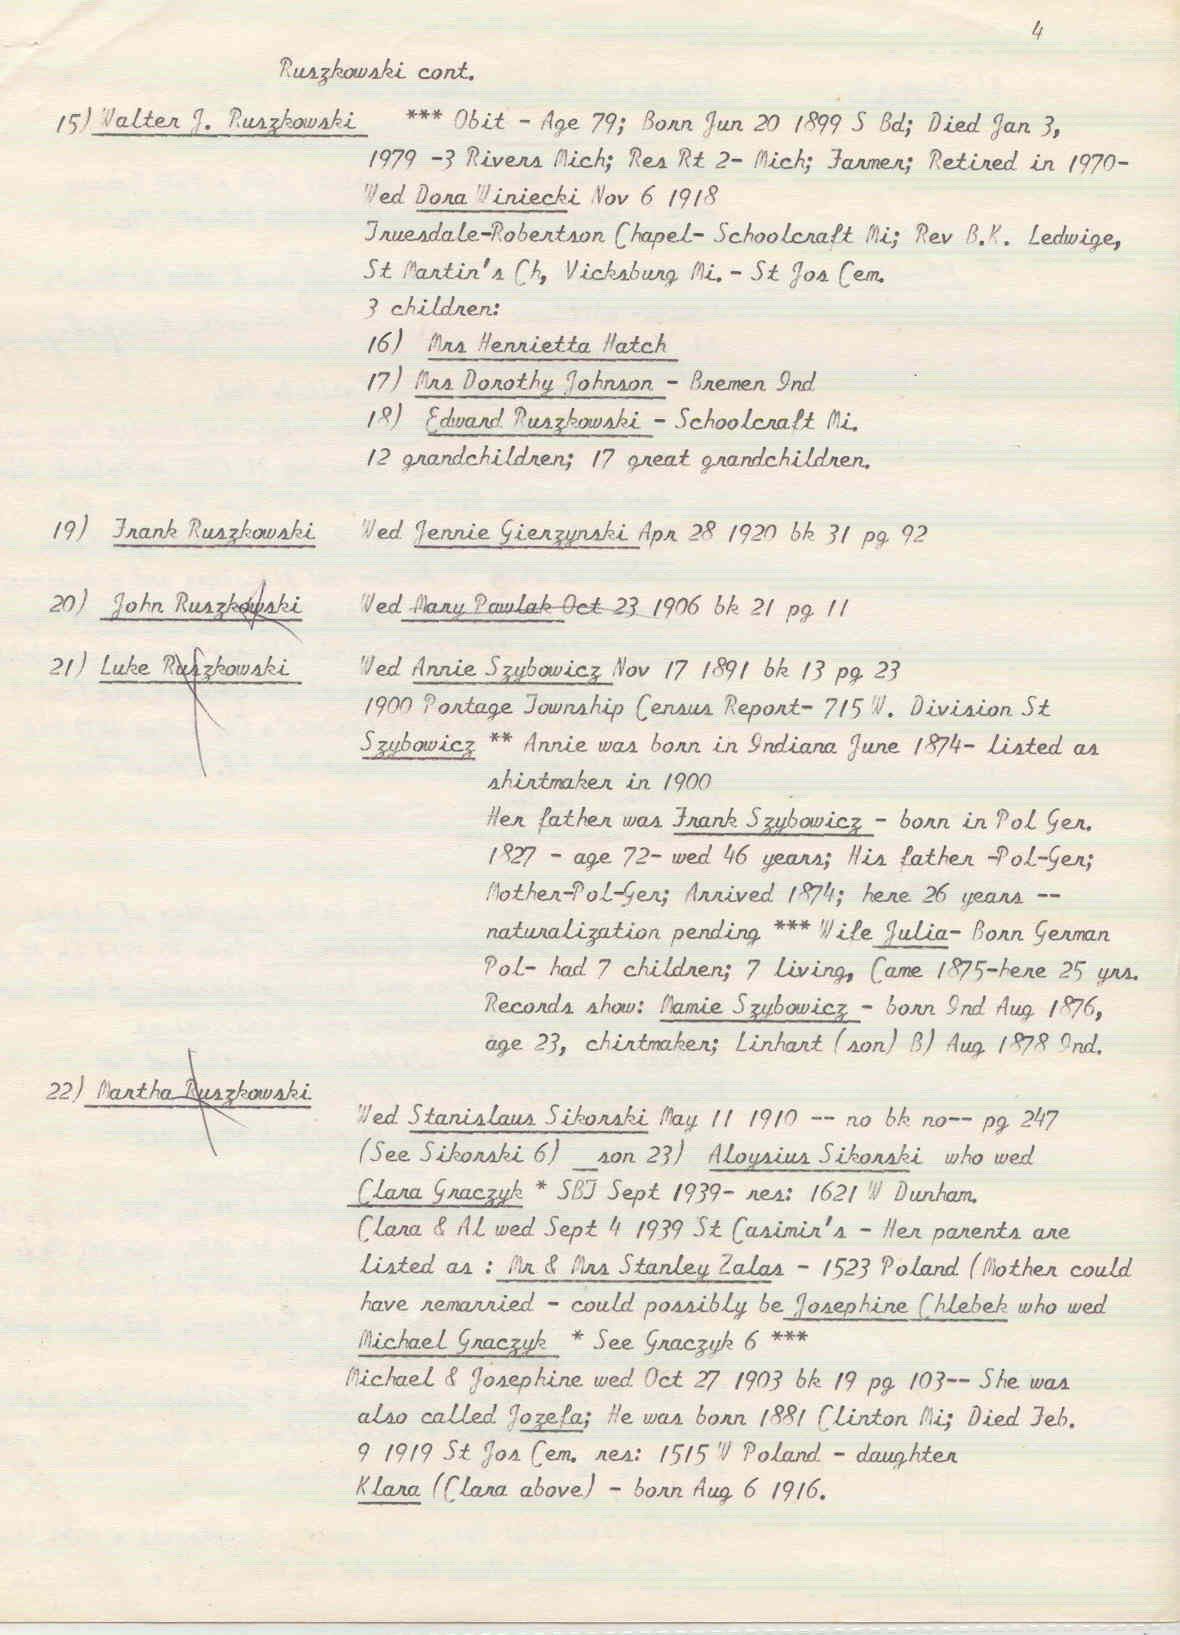 4
Ruszkowski cont.
15) Walter J. Ruszkowski *** Obit - Age 79; Born Jun 20 1899 S Bd; Died Jan 3,
1979 -3 Rivers Mich; Res Rt 2- Mich; Farmer; Retired in 1970-
Wed Dora Winiecki Nov 6 1918
Truesdale-Robertson Chapel- Schoolcraft Mi; Rev B.K. Ledwige,
St Martin's Ch, Vicksburg Mi. - St Jos Cem.
3 children:
16) Mrs Henrietta Hatch
17) Mrs Dorothy Johnson - Bremen Ind
18) Edward Ruszkowski - Schoolcraft Mi.
12 grandchildren; 17 great grandchildren.
19) Frank Ruszkowski Wed Jennie Gierzynski Apr 28 1920 bk 31 pg 92
20) John Ruszkowski Wed Mary Pawlak Oct 23 1906 bk 21 pg 11
21) Luke Ruszkowski Wed Annie Szybowicz Nov 17 1891 bk 13 pg 23
1900 Portage Township Census Report- 715 W. Division St
Szybowicz ** Annie was born in Indiana June 1874- listed as
shirtmaker in 1900
Her father was Frank Szybowicz - born in Pol Ger.
1827 - age 72- wed 46 years; His father -Pol-Ger;
Mother-Pol-Ger; Arrived 1874; here 26 years --
naturalization pending *** Wife Julia- Born German
Pol- had 7 children; 7 living, Came 1875-here 25 yrs.
Records show: Mamie Szybowicz - born Ind Aug 1876,
age 23, chirtmaker; Linhart (son) B) Aug 1878 Ind.
22) Martha Ruszkowski
Wed Stanislaus Sikorski May 11 1910 -- no bk no-- pg 247
(See Sikorski 6) __son 23) Aloysius Sikorski who wed
Clara Graczyk * SBT Sept 1939- res: 1621 W Dunham.
Clara & Al wed Sept 4 1939 St Casimir's - Her parents are
listed as : Mr & Mrs Stanley Zalas - 1523 Poland (Mother could
have remarried - could possibly be Josephine Chlebek who wed
Michael Graczyk * See Graczyk 6 ***
Michael & Josephine wed Oct 27 1903 bk 19 pg 103-- She was
also called Jozefa; He was born 1881 Clinton Mi; Died Feb.
9 1919 St Jos Cem. res: 1515 W Poland - daughter
Klara (Clara above) - born Aug 6 1916.